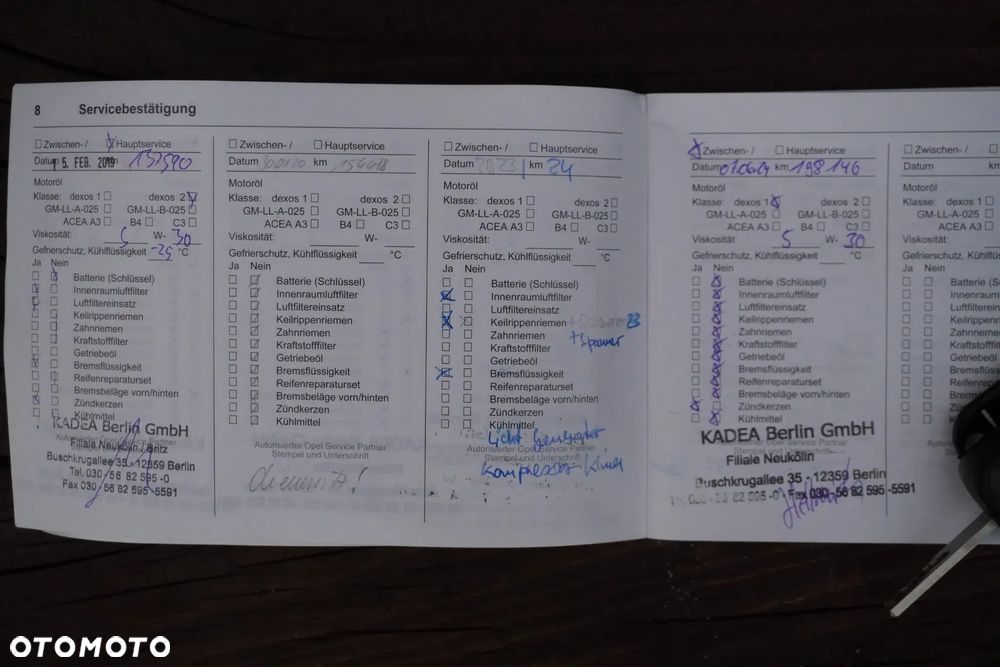 8 Servicebestätigung
Zwischen-/ Hauptservice
Datum 15. FEB. 2019 km 137590
Motoröl
Klasse: dexos 1 dexos 2
GM-LL-A-025 GM-LL-B-025
ACEA A3 B4 C3
Viskosität: 5 W- 30
Gefrierschutz, Kühlflüssigkeit -25 °C
Ja Nein
Batterie (Schlüssel)
Innenraumluftfilter
Luftfiltereinsatz
Keilrippenriemen
Zahnriemen
Kraftstofffilter
Getriebeöl
Bremsflüssigkeit
Reifenreparaturset
Bremsbeläge vorn/hinten
Zündkerzen
Kühlmittel
KADEA Berlin GmbH
Autorisierter Opel Service Partner
Filiale Neukölln
Buschkrugallee 35 - 12859 Berlin
Tel. 030 / 56 82 595 -0
Fax 030 / 56 82 595 -5591
Zwischen-/ Hauptservice
Datum km
Motoröl
Klasse: dexos 1 dexos 2
GM-LL-A-025 GM-LL-B-025
ACEA A3 B4 C3
Viskosität: W-
Gefrierschutz, Kühlflüssigkeit °C
Ja Nein
Batterie (Schlüssel)
Innenraumluftfilter
Luftfiltereinsatz
Keilrippenriemen
Zahnriemen
Kraftstofffilter
Getriebeöl
Bremsflüssigkeit
Reifenreparaturset
Bremsbeläge vorn/hinten
Zündkerzen
Kühlmittel
Autorisierter Opel Service Partner
Stempel und Unterschrift
Zwischen-/ Hauptservice
Datum 2023/ km 24
Motoröl
Klasse: dexos 1 dexos 2
GM-LL-A-025 GM-LL-B-025
ACEA A3 B4 C3
Viskosität: W-
Gefrierschutz, Kühlflüssigkeit °C
Ja Nein
Batterie (Schlüssel)
Innenraumluftfilter
Luftfiltereinsatz
Keilrippenriemen
Zahnriemen + Spanner
Kraftstofffilter
Getriebeöl
Bremsflüssigkeit
Reifenreparaturset
Bremsbeläge vorn/hinten
Zündkerzen
Kühlmittel
Licht Generator
Autorisierter Opel Service Partner
Stempel und Unterschrift
Kompressor Klima
Zwischen-/ Hauptservice
Datum 07.06.24 km 198146
Motoröl
Klasse: dexos 1 dexos 2
GM-LL-A-025 GM-LL-B-025
ACEA A3 B4 C3
Viskosität: 5 W- 30
Gefrierschutz, Kühlflüssigkeit °C
Ja Nein
Batterie (Schlüssel)
Innenraumluftfilter
Luftfiltereinsatz
Keilrippenriemen
Zahnriemen
Kraftstofffilter
Getriebeöl
Bremsflüssigkeit
Reifenreparaturset
Bremsbeläge vorn/hinten
Zündkerzen
Kühlmittel
KADEA Berlin GmbH
Autorisierter Opel Service Partner
Filiale Neukölln
Buschkrugallee 35 - 12359 Berlin
Fax 030 - 56 82 595 -5591
Zwischen-/
Datum
Motoröl
Klasse: dexos 1
GM-LL-A-025
ACEA A3
Viskosität:
Gefrierschutz, Kühlflüss
Ja Nein
Batterie
Innenra
Luftfilte
Keilripp
Zahnrie
Kraftsto
Getriebe
Bremsfl
Reifenre
OTOMOTO